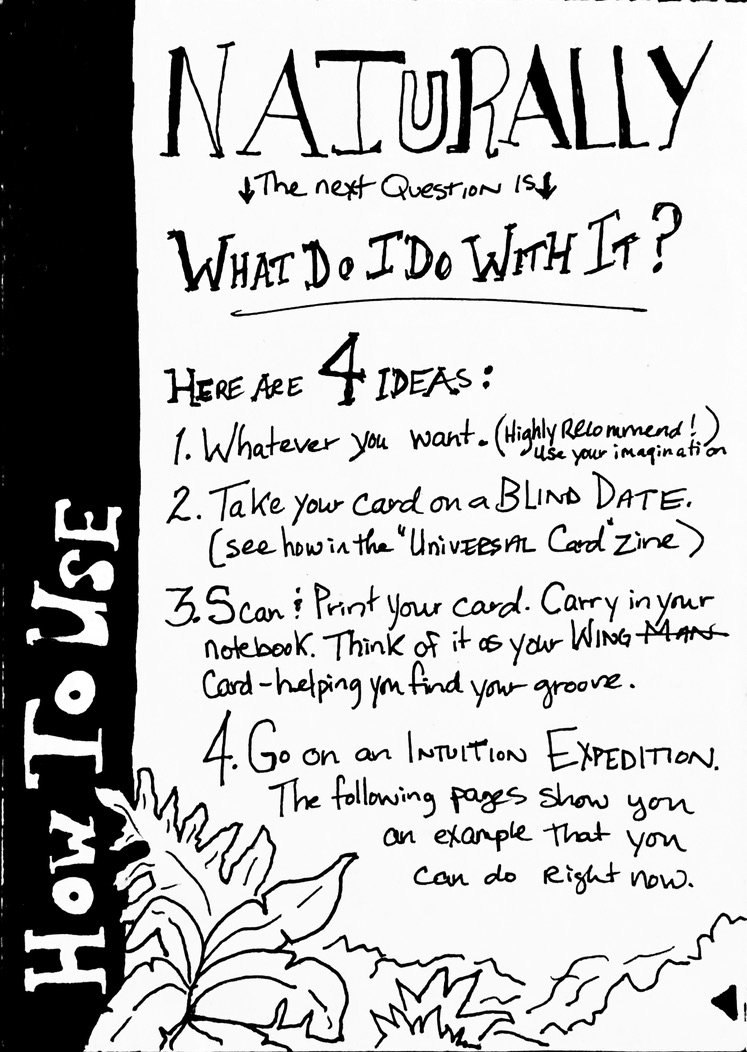 How To Use
NATURALLY
↓The next Question is↓
WHAT DO I DO WITH IT?
HERE ARE 4 IDEAS:
1. Whatever you want. (Highly Recommend!)
use your imagination
2. Take your card on a BLIND DATE.
(see how in the "UNIVERSAL Card" zine)
3. Scan & Print your card. Carry in your
notebook. Think of it as your WING MAN
Card-helping you find your groove.
4. Go on an INTUITION EXPEDITION.
The following pages show you
an example that you
can do Right now.